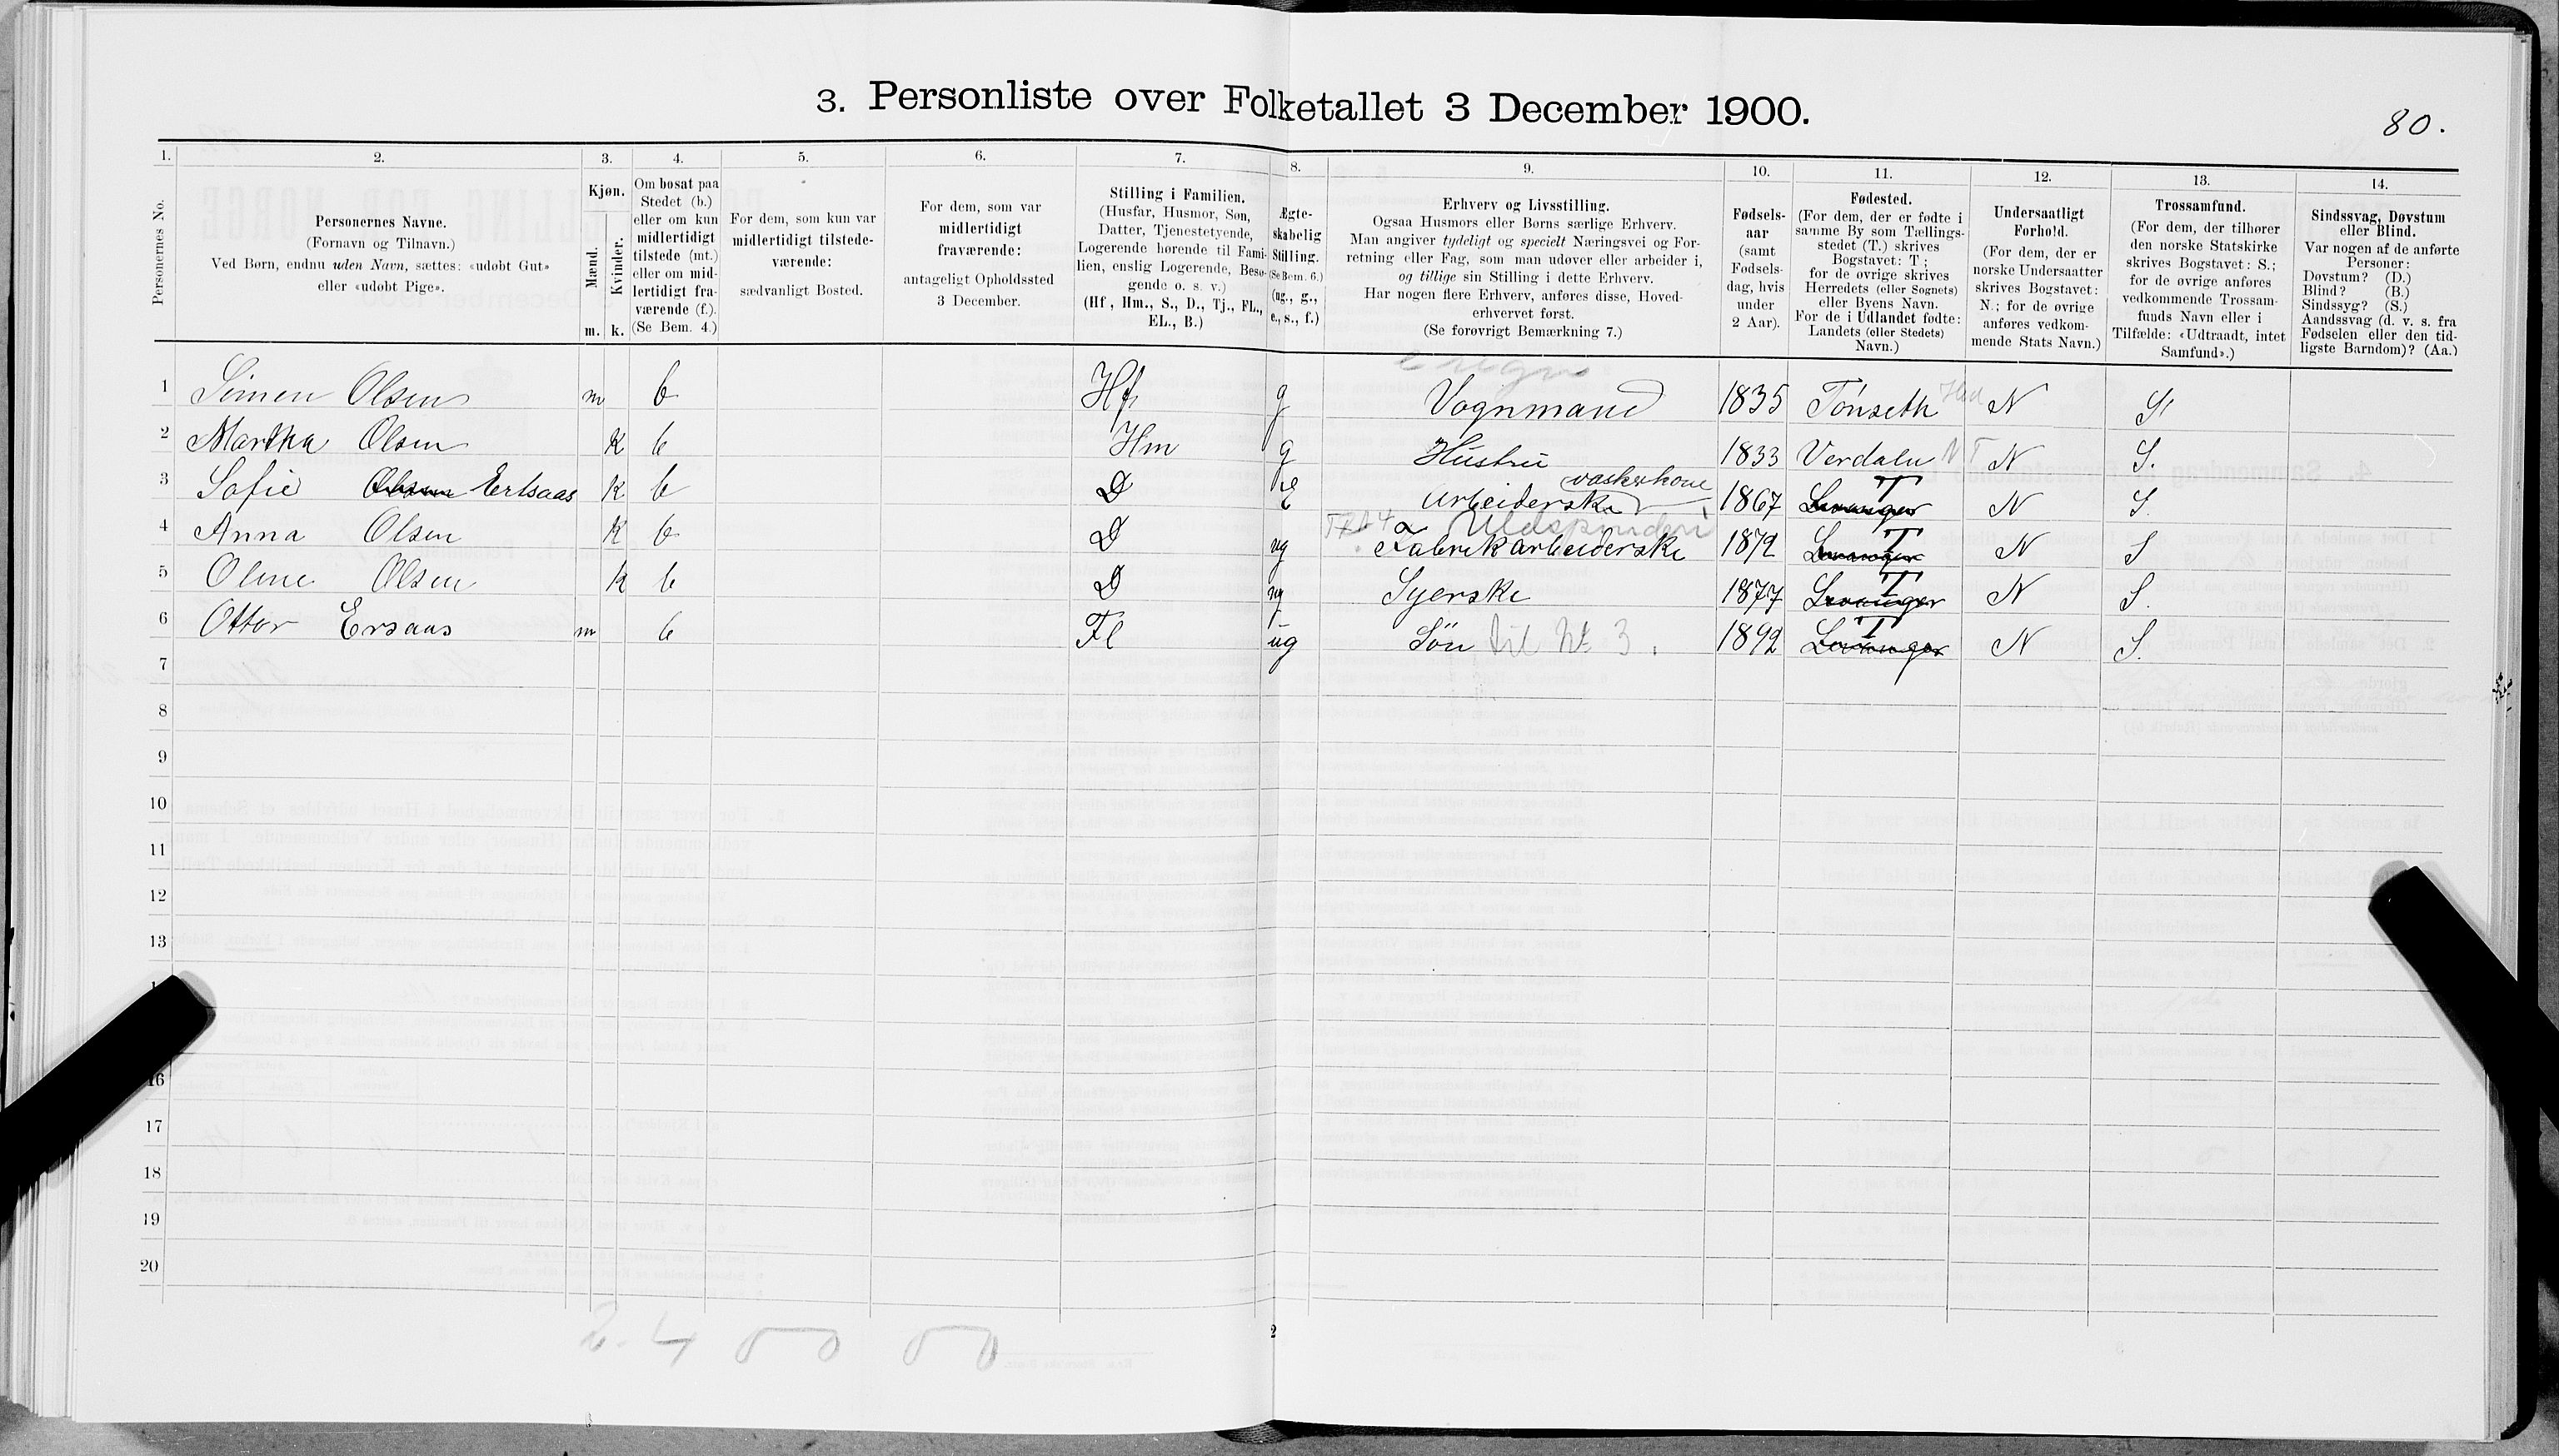 3. Personliste over Folketallet 3 December 1900.
80.
1. 2. 3. 4. 5. 6. 7. 8. 9. 10. 11. 12. 13. 14.
Personernes No.
Personernes Navne.
(Fornavn og Tilnavn.)
Ved Børn, endnu uden Navn, sættes: «udøbt Gut»
eller «udøbt Pige».
Kjøn.
Mænd.
Kvinder.
m. k.
Om bosat paa
Stedet (b.)
eller om kun
midlertidigt
tilstede (mt.)
eller om mid-
lertidigt fra-
værende (f.).
(Se Bem. 4.)
For dem, som kun var
midlertidigt tilstede-
værende:
sædvanligt Bosted.
For dem, som var
midlertidigt
fraværende:
antageligt Opholdssted
3 December.
Stilling i Familien.
(Husfar, Husmor, Søn,
Datter, Tjenestetyende,
Logerende hørende til Fami-
lien, enslig Logerende, Besø-
gende o. s. v.)
(Hf, Hm., S., D., Tj., FL.,
EL., B.)
Ægte-
skabelig
Stilling.
(Se Bem. 6.)
(ug., g.,
e., s., f.)
Erhverv og Livsstilling.
Ogsaa Husmors eller Børns særlige Erhverv.
Man angiver tydeligt og specielt Næringsvei og For-
retning eller Fag, som man udøver eller arbeider i,
og tillige sin Stilling i dette Erhverv.
Har nogen flere Erhverv, anføres disse, Hoved-
erhvervet først.
(Se forøvrigt Bemærkning 7.)
Fødsels-
aar
(samt
Fødsels-
dag, hvis
under
2 Aar).
Fødested.
(For dem, der er fødte i
samme By som Tællings-
stedet (T.) skrives
Bogstavet: T;
for de øvrige skrives
Herredets (eller Sognets)
eller Byens Navn.
For de i Udlandet fødte:
Landets (eller Stedets)
Navn.)
Undersaatligt
Forhold.
(For dem, der er
norske Undersaatter
skrives Bogstavet:
N.; for de øvrige
anføres vedkom-
mende Stats Navn.)
Trossamfund.
(For dem, der tilhører
den norske Statskirke
skrives Bogstavet: S.;
for de øvrige anføres
vedkommende Trossam-
funds Navn eller i
Tilfælde: «Udtraadt, intet
Samfund».)
Sindssvag, Døvstum
eller Blind.
Var nogen af de anførte
Personer:
Døvstum? (D.)
Blind? (B.)
Sindssyg? (S.)
Aandssvag (d. v. s. fra
Fødselen eller den tid-
ligste Barndom)? (Aa.)
1 Simen Olsen m b Hf g Vognmand 1835 Tönseth Hed N S
2 Martha Olsen K b Hm g Hustru 1833 Verdalen NT N S.
vaskerkone
3 Sofie Olsen Ertsaas K b D E Arbeiderske 1867 Levanger T N S.
Uldspinderi
4 Anna Olsen K b D ug Fabrikarbeiderske 1872 Levanger T N S
5 Oline Olsen K b D ug Syerske 1877 Levanger T N S.
6 Ottar Ersaas m b Fl ug Sön til No 3. 1892 Levanger T N S.
7
8
9
10
11
12
13
16
17
18
19
20
2. 4
2